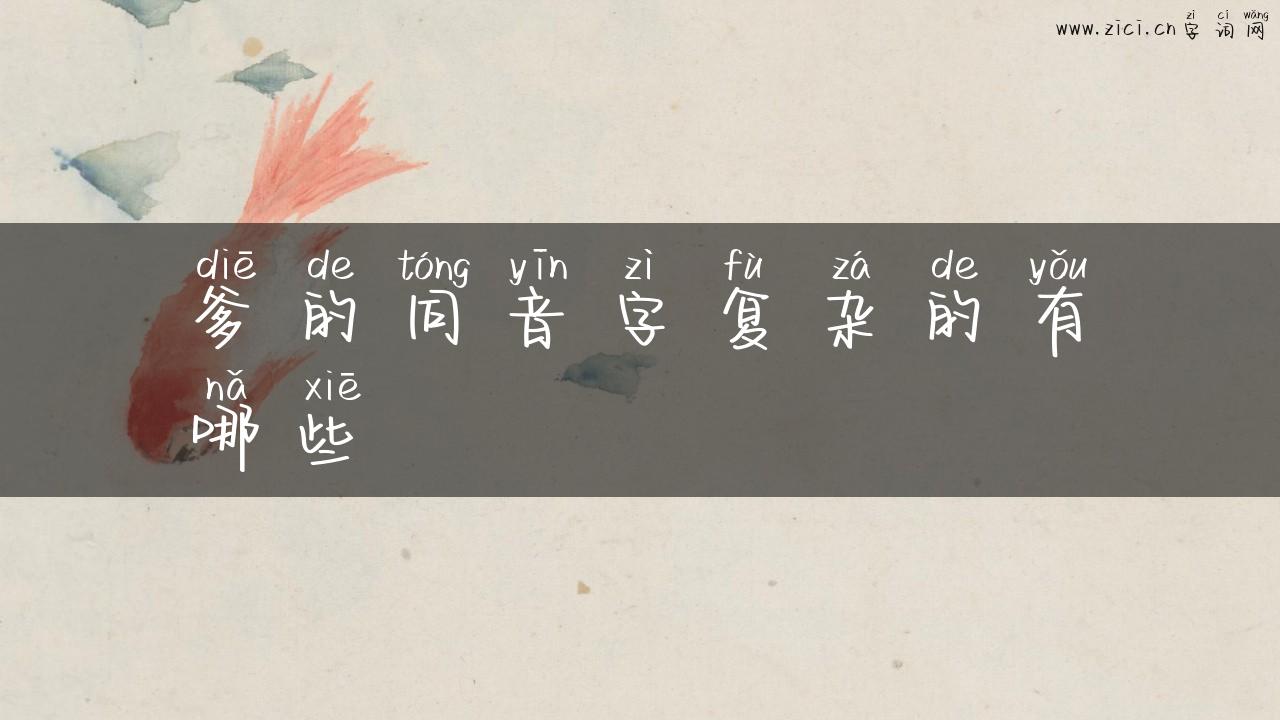 zì cí wǎng
www.zici.cn 字词网
diē de tóng yīn zì fù zá de yǒu
爹的同音字复杂的有
nǎ xiē
哪些